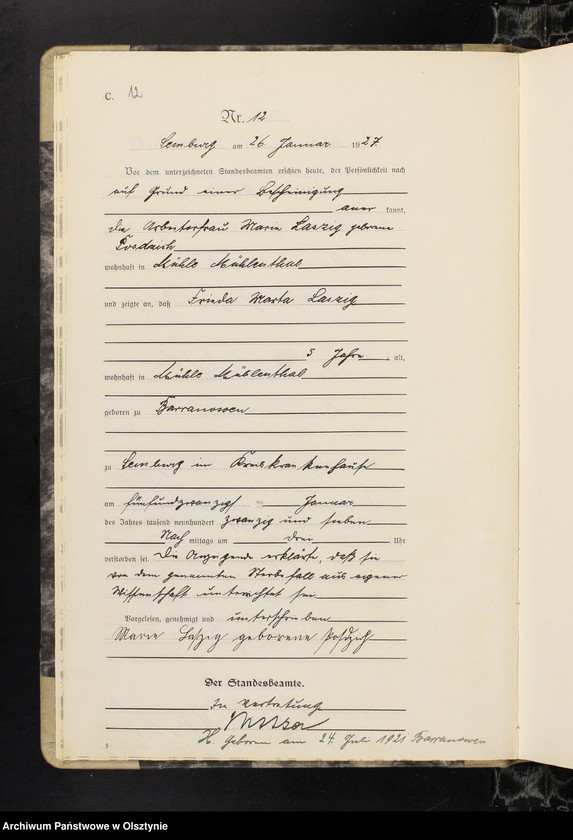 C. 12
Nr. 12
am 26 Januar 1927
Vor dem unterzeichneten Standesbeamten erschien heute, der Persönlichkeit nach
auf Grund einer Bescheinigung
aner kannt,
die Arbeiterfrau Marie Laszig geborene
wohnhaft in Mühle Mühlenthal
und zeigte an, daß Frieda Marta Laszig
5 Jahre, alt,
wohnhaft in Mühle Mühlenthal
geboren zu Barranowen
zu im Kreiskrankenhause
am fünfundzwanzigsten Januar
des Jahres tausend neunhundert zwanzig und sieben
Nach mittags um drei Uhr
verstorben sei. Die Anzeigende erklärte, daß sie
von dem genannten Sterbefall aus eigener
Wissenschaft unterrichtet sei
Vorgelesen, genehmigt und unterschrieben
Marie Laszig geborene
Der Standesbeamte.
In Vertretung
Geboren am 24. Juli 1921 Barranowen
Archiwum Państwowe w Olsztynie